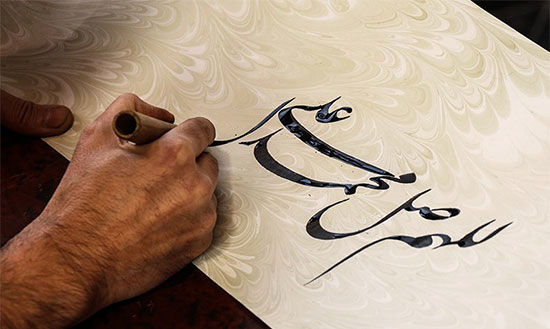 اللهم صل علی محمد